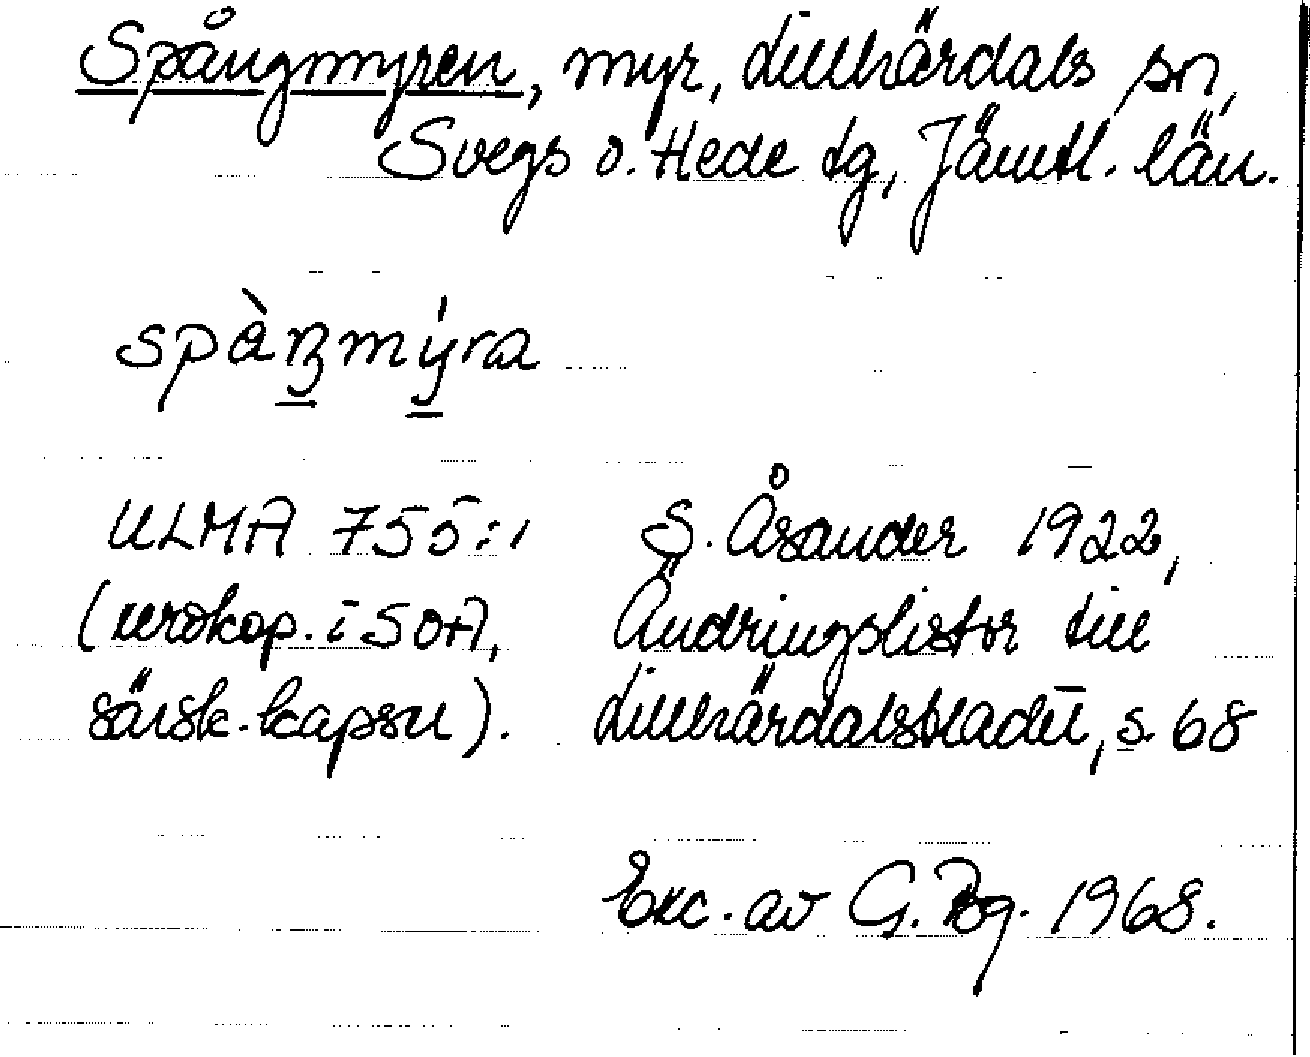 Spångmyren, myr, Lillhärdals sn,
Svegs o. Hede tg, Jämtl. län.
spàŋmýra
ULMA 755:1
(xerokop. i SOA,
särsk. kapsel).
S. Åsander 1922,
Ändringslistor till
Lillhärdalsbladet, s. 68
Exc. av G. Bg. 1968.